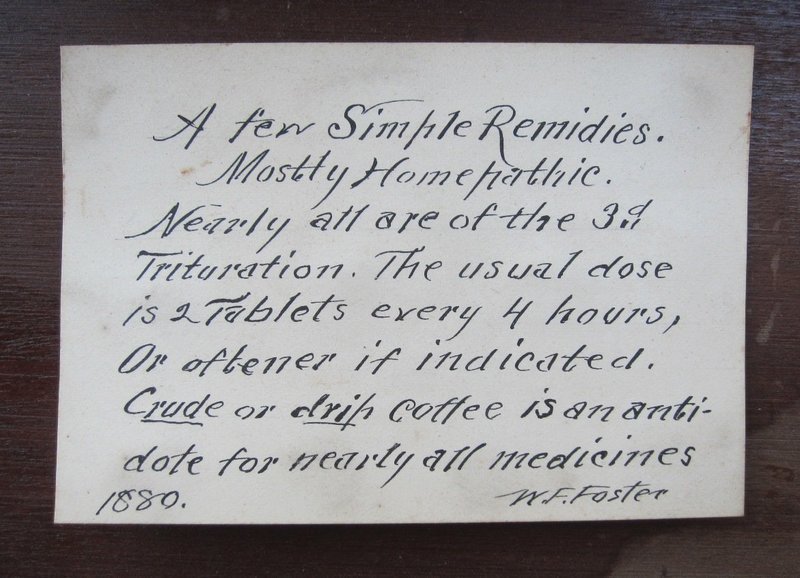 A few Simple Remidies.
Mostly Homepathic.
Nearly all are of the 3d
Trituration. The usual dose
is 2 Tablets every 4 hours,
Or oftener if indicated.
Crude or drip coffee is an anti-
dote for nearly all medicines
1880. W.F. Foster